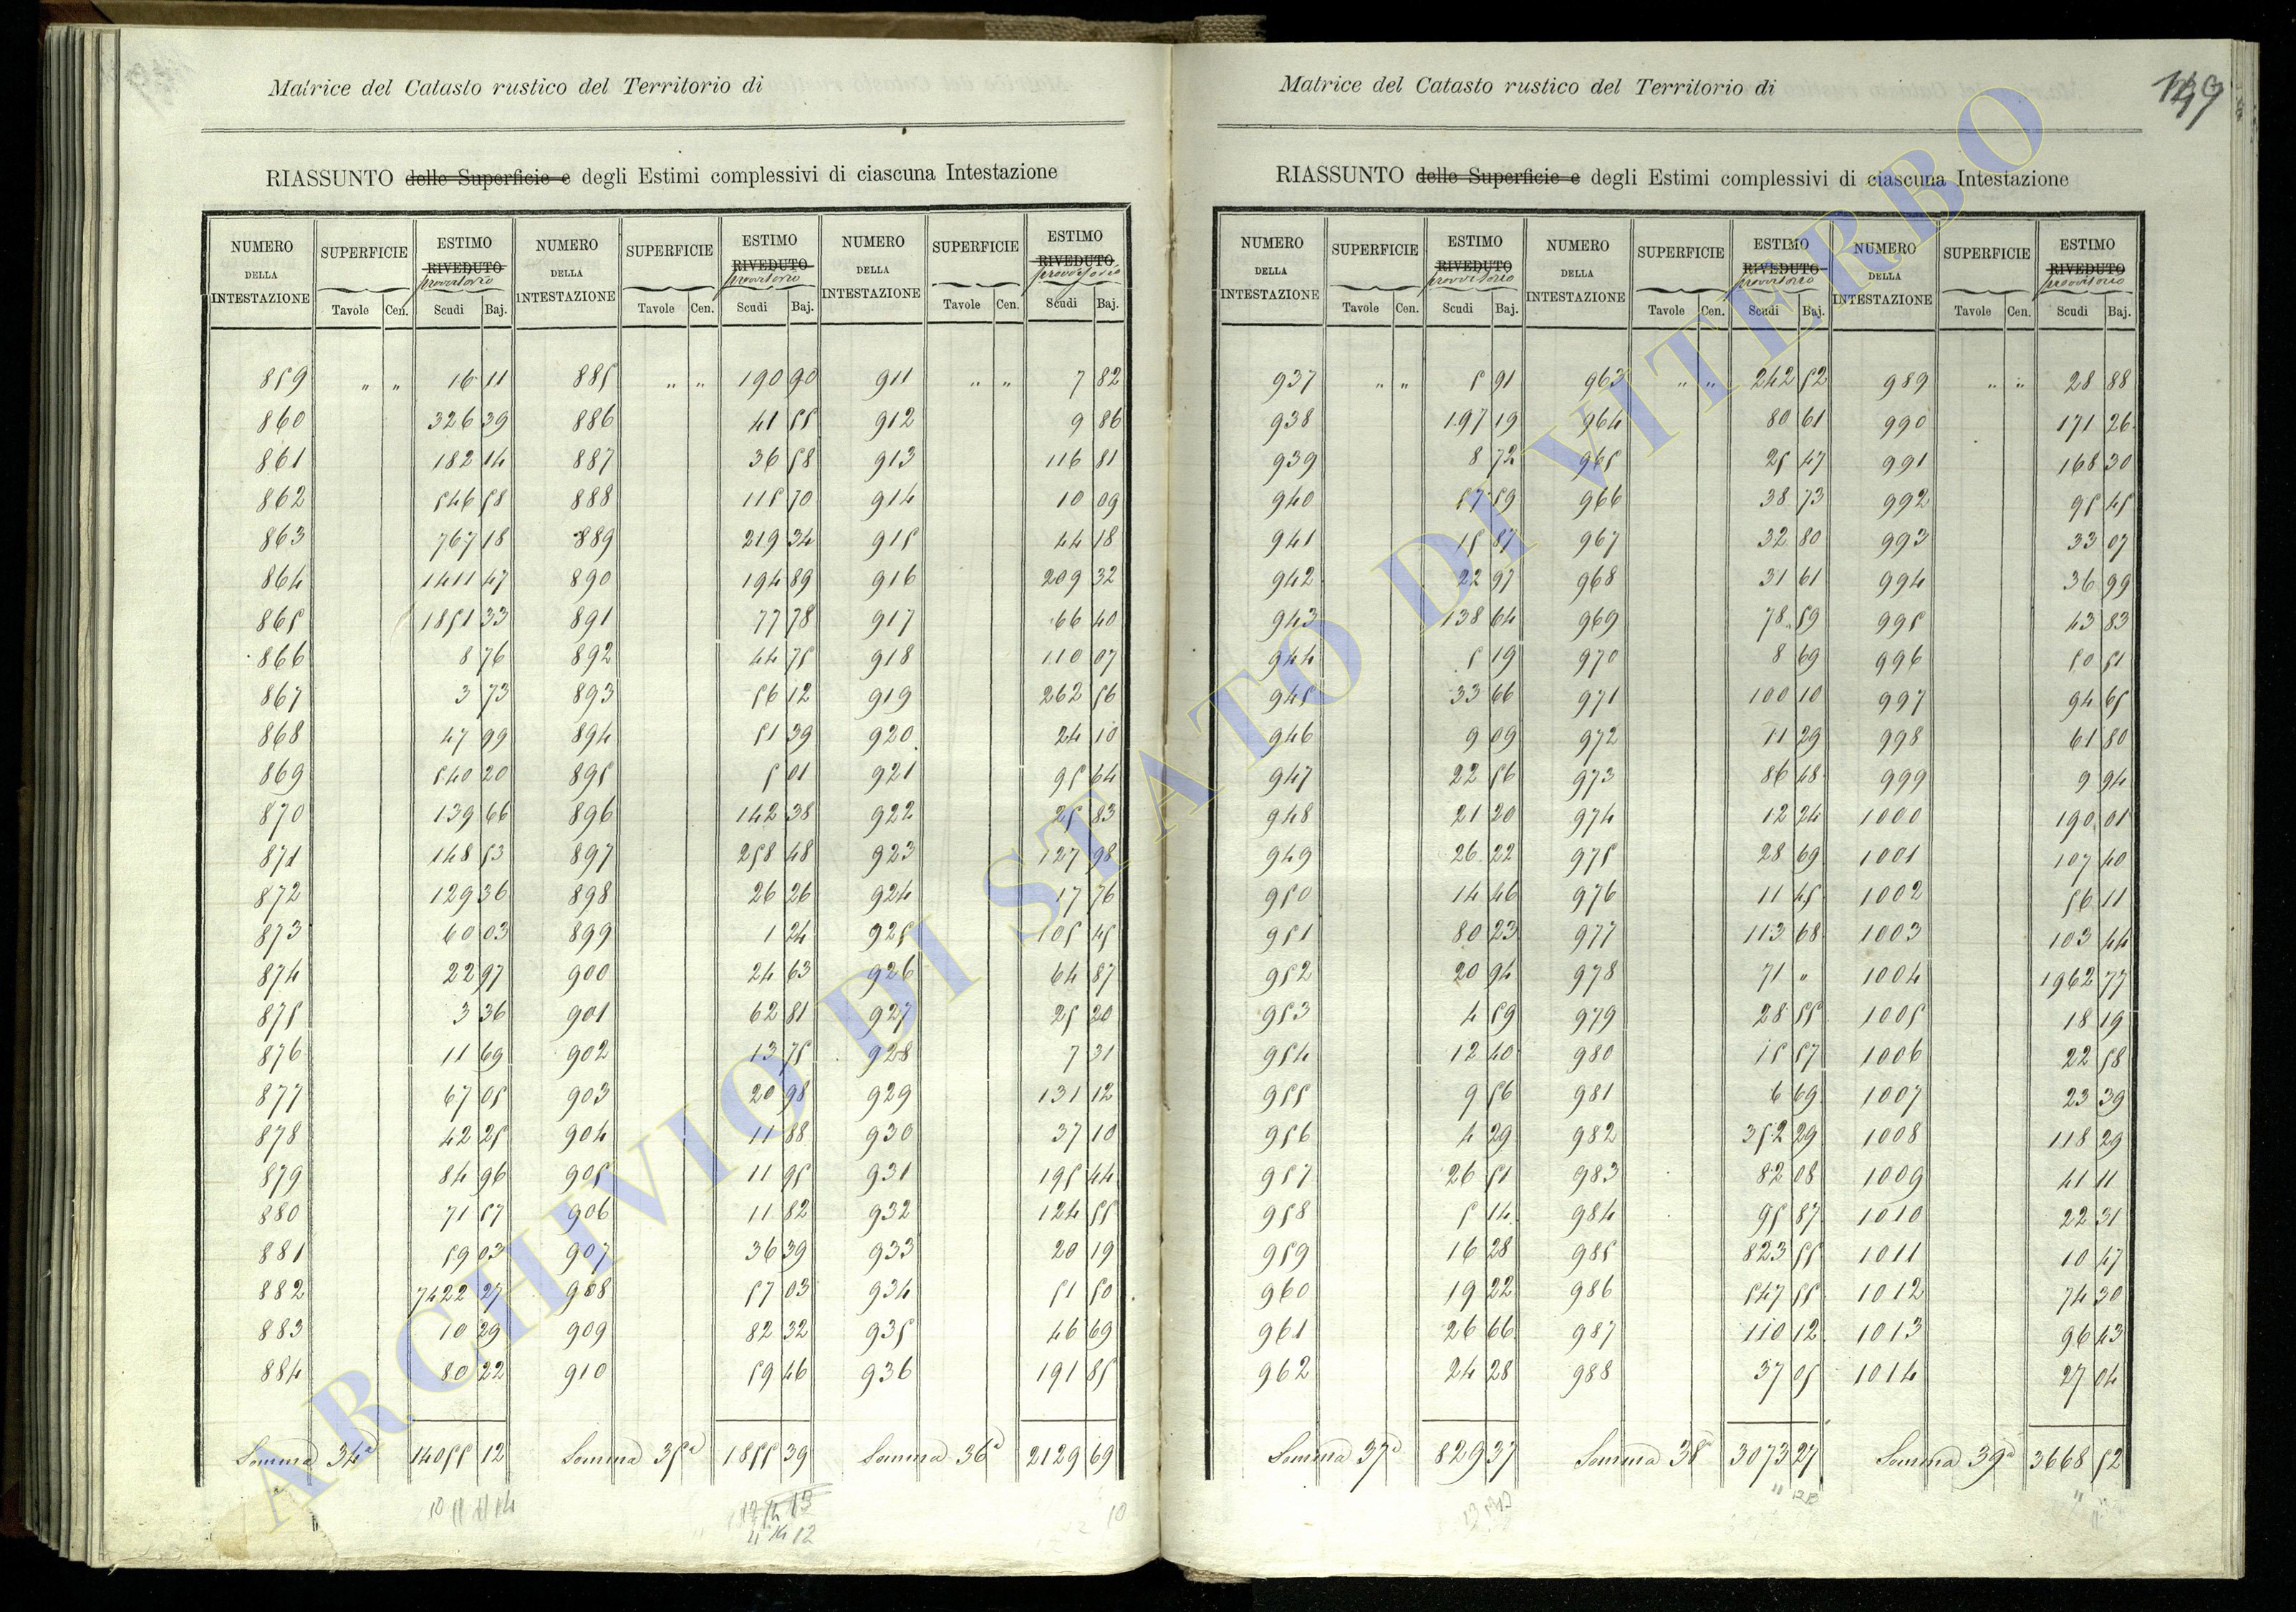 Matrice del Catasto rustico del Territorio di
RIASSUNTO delle Superficie e degli Estimi complessivi di ciascuna Intestazione
NUMERO DELLA INTESTAZIONE SUPERFICIE Tavole Cen. ESTIMO RIVEDUTO provvisorio Scudi Baj. NUMERO DELLA INTESTAZIONE SUPERFICIE Tavole Cen. ESTIMO RIVEDUTO provvisorio Scudi Baj. NUMERO DELLA INTESTAZIONE SUPERFICIE Tavole Cen. ESTIMO RIVEDUTO provvisorio Scudi Baj.
859 " " 16 11 885 " " 190 90 911 " " 7 82
860 326 39 886 41 55 912 9 86
861 182 14 887 36 58 913 116 81
862 546 58 888 115 70 914 10 09
863 767 18 889 219 34 915 44 18
864 1411 47 890 194 89 916 209 32
865 1851 33 891 77 78 917 66 40
866 8 76 892 44 75 918 110 07
867 3 73 893 56 12 919 262 56
868 47 99 894 51 39 920 24 10
869 540 20 895 5 01 921 95 64
870 139 66 896 142 38 922 25 83
871 148 53 897 258 48 923 127 98
872 129 36 898 26 26 924 17 76
873 60 03 899 1 24 925 105 45
874 22 97 900 24 63 926 64 87
875 3 36 901 62 81 927 25 20
876 11 69 902 13 75 928 7 31
877 67 05 903 20 98 929 131 12
878 42 25 904 11 88 930 37 10
879 84 96 905 11 95 931 195 44
880 71 57 906 11 82 932 124 55
881 59 03 907 36 39 933 20 19
882 7422 27 908 57 03 934 51 50
883 10 29 909 82 32 935 46 69
884 80 22 910 59 46 936 191 85
Somma 34a 14055 12 Somma 35a 1855 39 Somma 36a 2129 69
Matrice del Catasto rustico del Territorio di
149
RIASSUNTO delle Superficie e degli Estimi complessivi di ciascuna Intestazione
NUMERO DELLA INTESTAZIONE SUPERFICIE Tavole Cen. ESTIMO RIVEDUTO provvisorio Scudi Baj. NUMERO DELLA INTESTAZIONE SUPERFICIE Tavole Cen. ESTIMO RIVEDUTO provvisorio Scudi Baj. NUMERO DELLA INTESTAZIONE SUPERFICIE Tavole Cen. ESTIMO RIVEDUTO provvisorio Scudi Baj.
937 " " 5 91 963 " " 242 52 989 " " 28 88
938 197 19 964 80 61 990 171 26
939 8 72 965 25 47 991 168 30
940 57 59 966 38 73 992 95 45
941 15 87 967 32 80 993 33 07
942 22 97 968 31 61 994 36 99
943 138 64 969 78 59 995 43 83
944 5 19 970 8 69 996 50 51
945 33 66 971 100 10 997 94 65
946 9 09 972 11 29 998 61 80
947 22 56 973 86 48 999 9 94
948 21 20 974 12 24 1000 190 01
949 26 22 975 28 69 1001 107 40
950 14 46 976 11 45 1002 56 11
951 80 23 977 113 68 1003 103 44
952 20 94 978 71 " 1004 1962 77
953 4 59 979 28 55 1005 18 19
954 12 40 980 15 57 1006 22 58
955 9 56 981 6 69 1007 23 39
956 4 29 982 352 29 1008 118 29
957 26 51 983 82 08 1009 41 11
958 5 14 984 95 87 1010 22 31
959 16 28 985 823 55 1011 10 47
960 19 22 986 547 55 1012 74 30
961 26 66 987 110 12 1013 96 43
962 24 28 988 37 05 1014 27 04
Somma 37a 829 37 Somma 38a 3073 27 Somma 39a 3668 52
ARCHIVIO DI STATO DI VITERBO